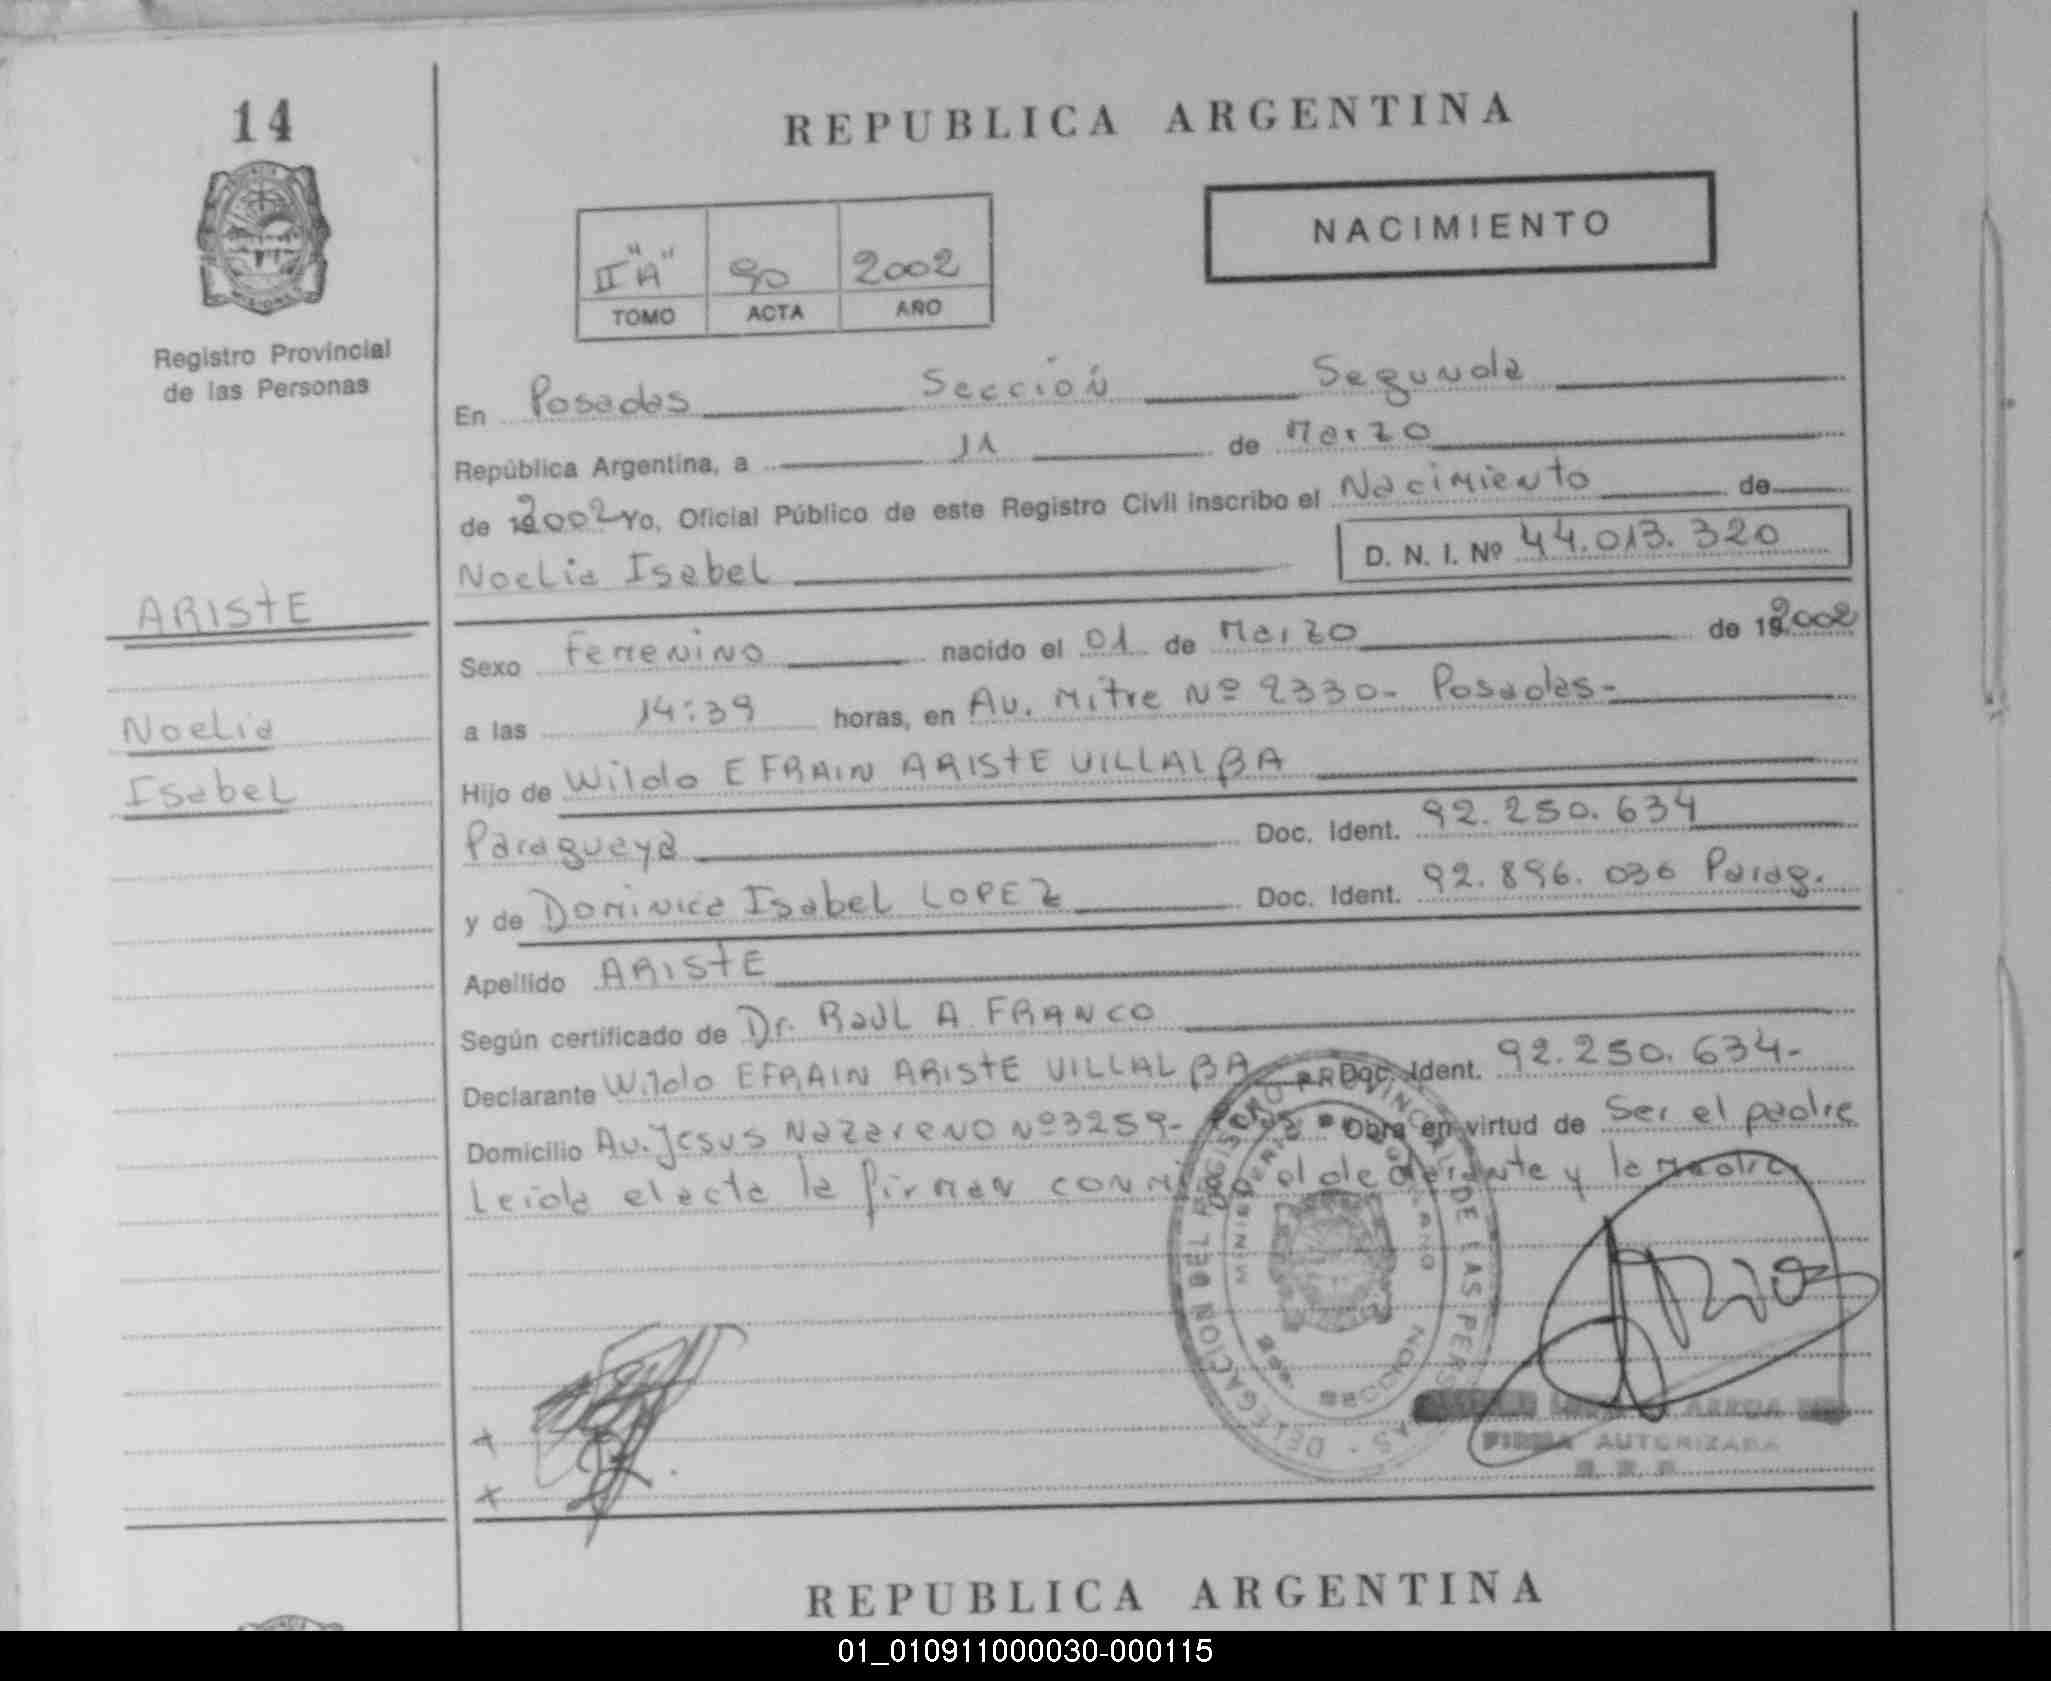 14
REPUBLICA ARGENTINA
NACIMIENTO
II "A" 90 2002
TOMO ACTA AÑO
Registro Provincial
de las Personas
En Posadas Sección Segunda
República Argentina, a 11 de Marzo
de 192002 Yo, Oficial Público de este Registro Civil inscribo el Nacimiento de
Noelia Isabel D. N. I. Nº 44.013.320
ARISTE
Noelia
Isabel
Sexo Femenino nacido el 01 de Marzo de 192002
a las 14:39 horas, en Av. Mitre Nº 2330- Posadas-
Hijo de Wildo EFRAIN ARISTE VILLALBA
Paraguaya Doc. Ident. 92.250.634
y de Dominica Isabel LOPEZ Doc. Ident. 92.896.036 Parag.
Apellido ARISTE
Según certificado de Dr. Raul A. FRANCO
Declarante Wildo EFRAIN ARISTE VILLALBA Doc. Ident. 92.250.634-
Domicilio Av. Jesus Nazareno Nº 3259- Obra en virtud de Ser el padre
Leida el acta la firman el declarante y la Madre
DELEGACION DEL REGISTRO PROVINCIAL DE LAS PERSONAS
FIRMA AUTORIZADA
REPUBLICA ARGENTINA
01_010911000030-000115